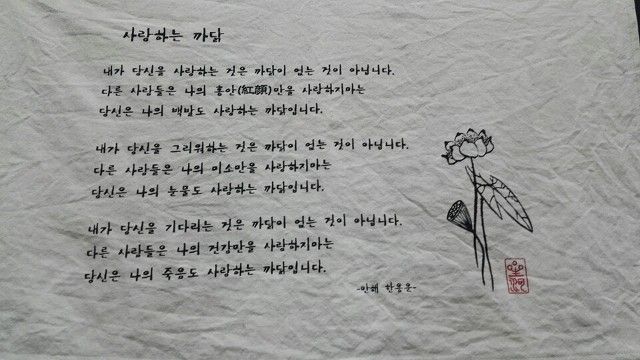 사랑하는 까닭
내가 당신을 사랑하는 것은 까닭이 없는 것이 아닙니다.
다른 사람들은 나의 홍안(紅顔)만을 사랑하지마는
당신은 나의 백발도 사랑하는 까닭입니다.
내가 당신을 그리워하는 것은 까닭이 없는 것이 아닙니다.
다른 사람들은 나의 미소만을 사랑하지마는
당신은 나의 눈물도 사랑하는 까닭입니다.
내가 당신을 기다리는 것은 까닭이 없는 것이 아닙니다.
다른 사람들은 나의 건강만을 사랑하지마는
당신은 나의 죽음도 사랑하는 까닭입니다.
-만해 한용운-